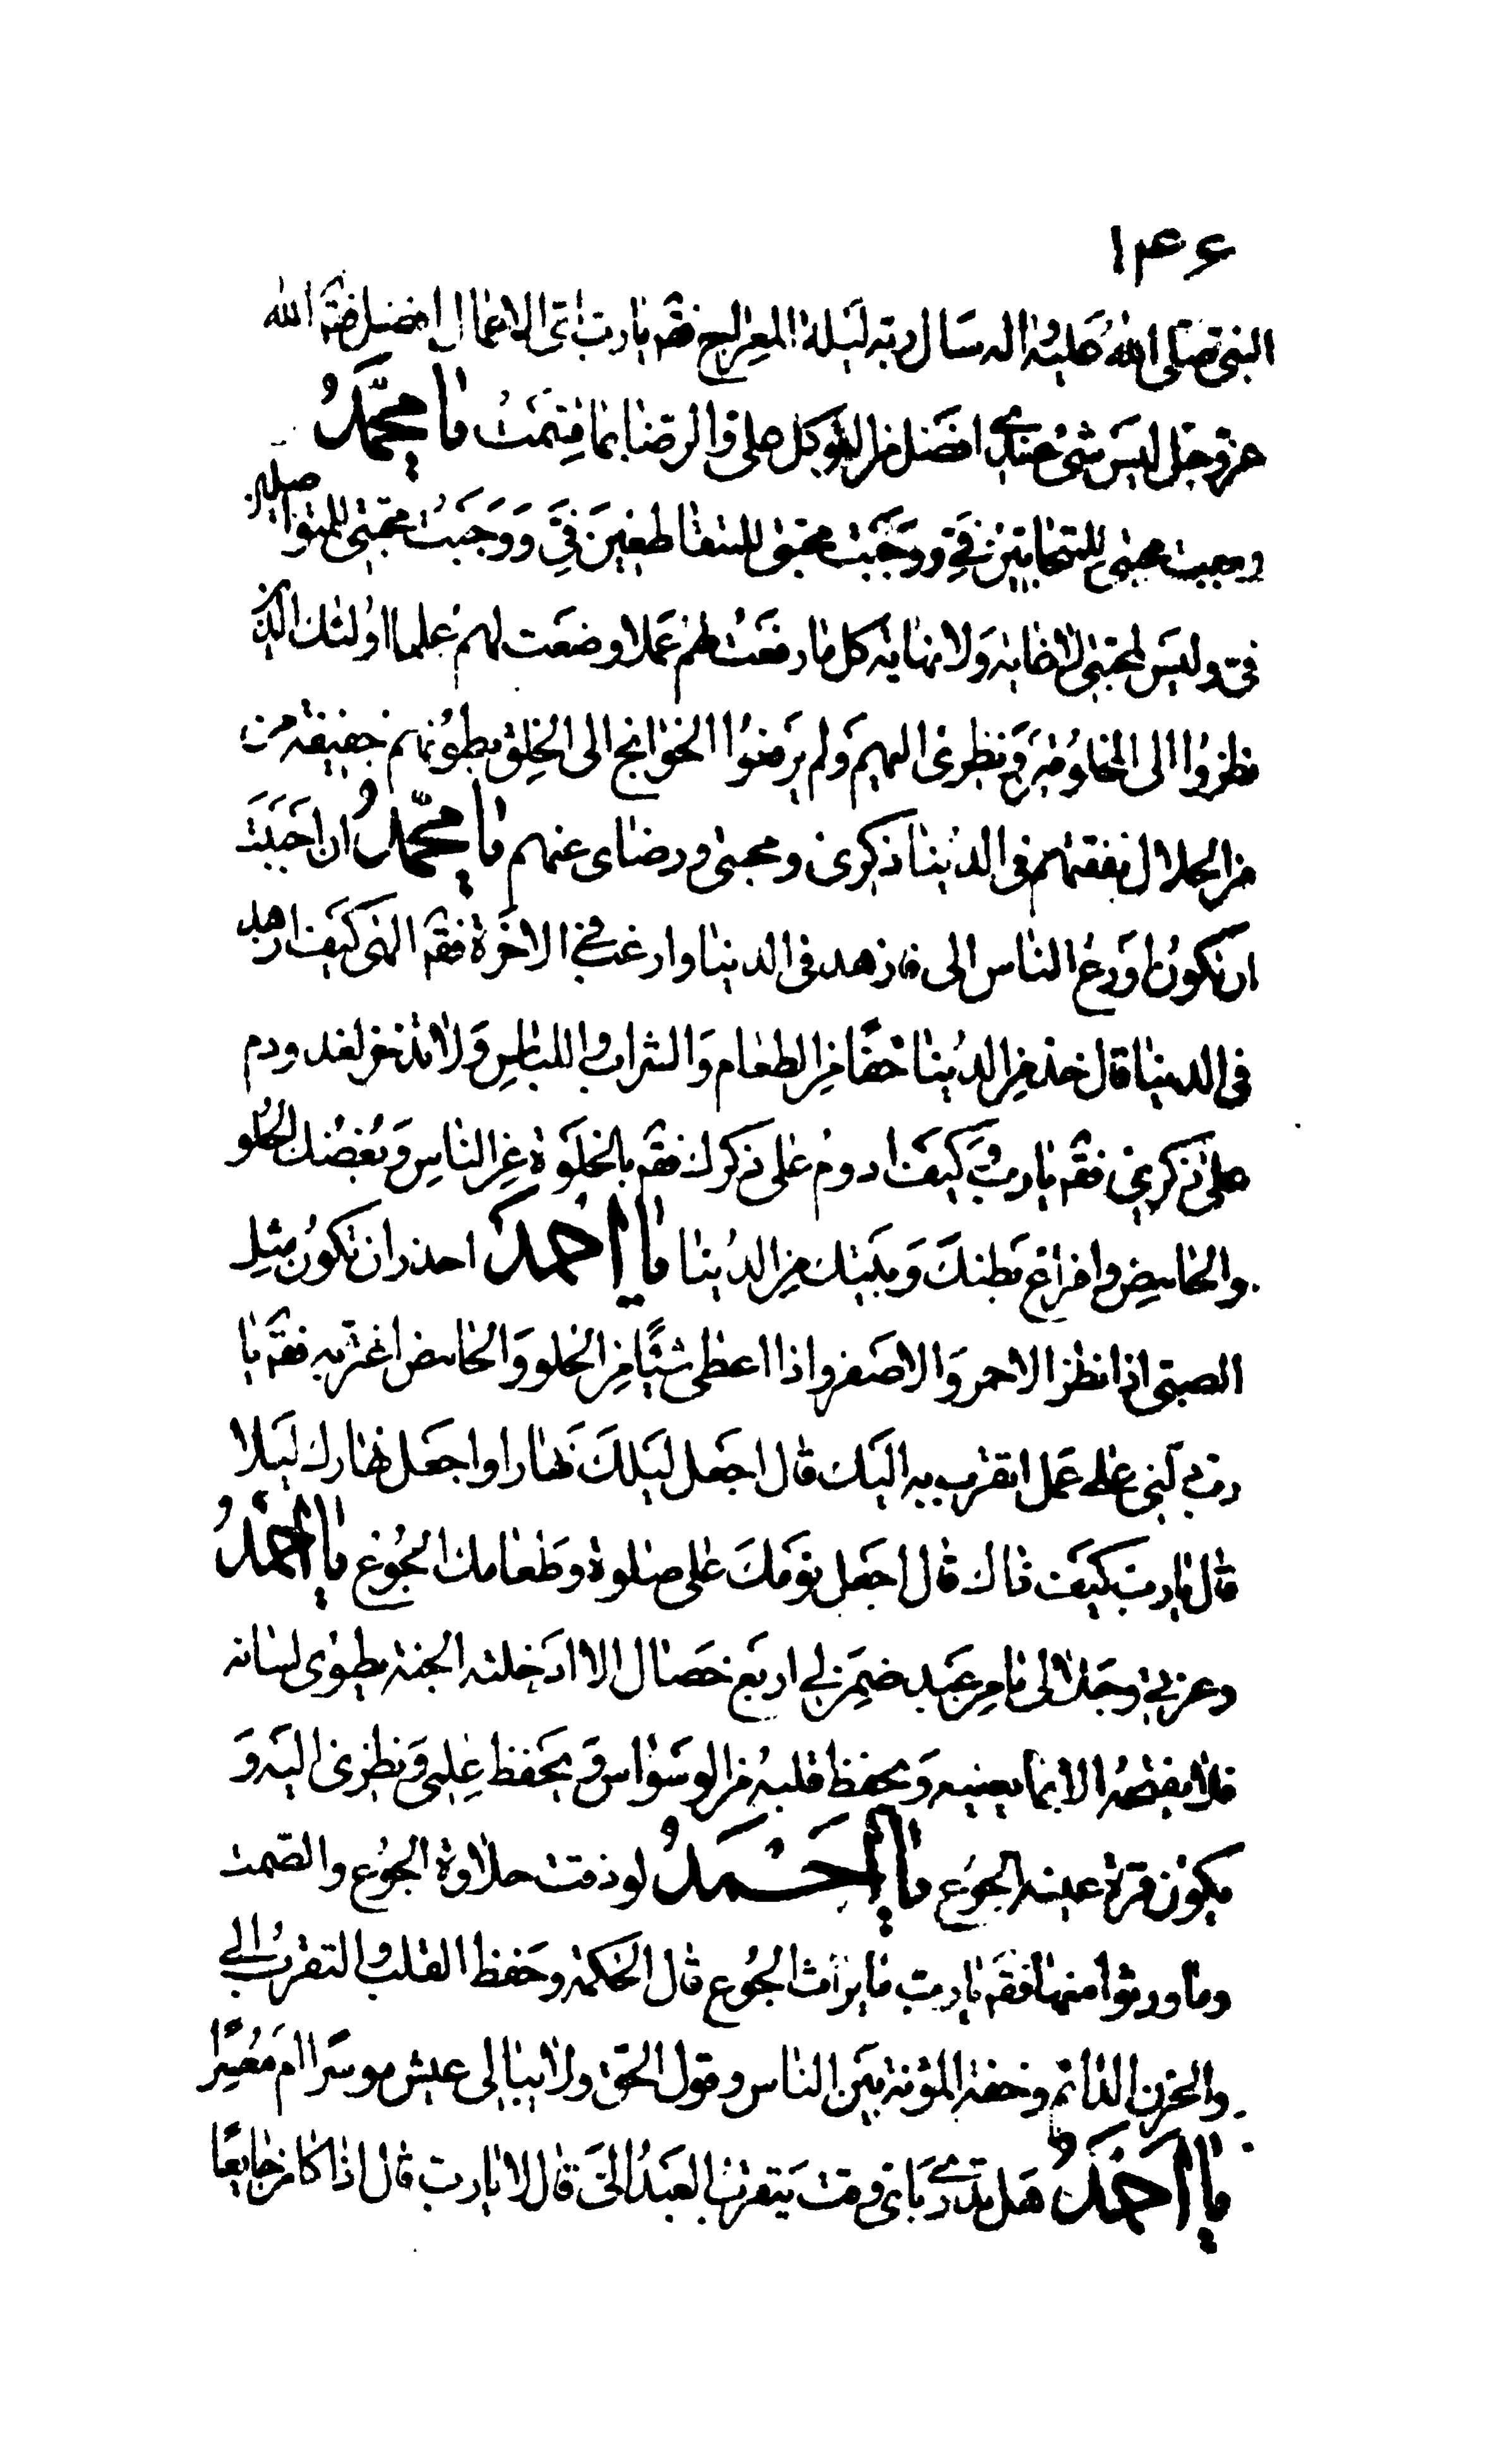 ۱۴۶
النبی صلی الله علیه واله سال ربه لیلة المعراج فقٓم یا رب ای الاعمال افضل فقٓم الله
عز وجل لیس شیء عندی افضل من التوکل علی والرضا بما قسمت یا محمد
وجبت محبتی للمتحابین فی ووجبت محبتی للمتقاطعین فی ووجبت محبتی للمتواصلین
فی ولیس لمحبتی غایه ولا نهایه کل ما رفعت لهم عملا وضعت لهم علما اولئک الذین
نظروا الی المخلوقین بنظری الیهم ولم یرفعوا الحوائج الی الخلق بطونهم خفیفة من
من الحلال نفقتهم فی الدنیا ذکری ومحبتی ورضای عنهم یا محمد ان احببت
ان تکون اورع الناس الی فازهد فی الدنیا وارغب فی الاخرة فقٓم الهی کیف ازهد
فی الدنیا قال خذ من الدنیا خفا من الطعام والشراب واللباس ولا تدخر لغد ودم
علی ذکری فقٓم یا رب وکیف ادوم علی ذکرک فقٓم بالخلوة عن الناس وبغضک الحلو
والحامض وافراغ بطنک وبیتک من الدنیا یا احمد احذر ان تکون مثل
الصبی اذا نظر الاحمر والاصفر واذا اعطی شیئا من الحلو والحامض اغتر به فقٓم یا
رب دلنی علی عمل اتقرب به الیک قال اجعل لیلک نهارا واجعل نهارک لیلا
قال یا رب کیف ذاک قال اجعل نومک علی صلوة وطعامک الجوع یا احمد
وعزتی وجلالی ما من عبد ضمن لی اربع خصال الا ادخلته الجنة یطوی لسانه
فلا یفتحه الا بما یعنیه ویحفظ قلبه من الوسواس ویحفظ علمی ونظری الیه و
یکون قرة عینه الجوع یا احمد لو ذقت حلاوة الجوع والصمت
وما ورثوا منها فقٓم یا رب ما میراث الجوع قال الحکمة وحفظ القلب والتقرب الی
والحزن الدائم وخفة المؤنة بین الناس وقول الحق ولا یبالی عیش موسرا ام معسرا
یا احمد هل تدری بای وقت یتقرب العبد الی قال لا یا رب قال اذا کان جایعا